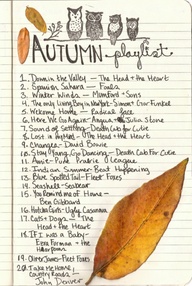 AUTUMN playlist
1. Down in the Valley - The Head + the Heart
2. Spanish Sahara - Foals
3. Winter Winds - Mumford + Sons
4. The only Living Boy in New York - Simon + Garfunkel
5. Welcome Home - Radical Face
6. Here We Go Again - Angus + Julia Stone
7. Sound of Settling - Death Cab for Cutie
8. Lost in my Mind - The Head + the Heart
9. Changes - David Bowie
10. Stay Young, Go Dancing - Death Cab For Cutie
11. Aussie - Port League
12. Indian Summer - Beat Happening
13. Blue Spotted Tail - Fleet Foxes
14. Seashell - Seabear
15. You Remind me of Home -
Ben Gibbard
16. Hotcha Girls - Ugly Casanova
17. Cats + Dogs - The
Head + The Heart
18. If I was a Baby -
Ezra Furman + the
Harpoons
19. Oliver James - Fleet Foxes
20. Take me Home,
Country Roads -
John Denver